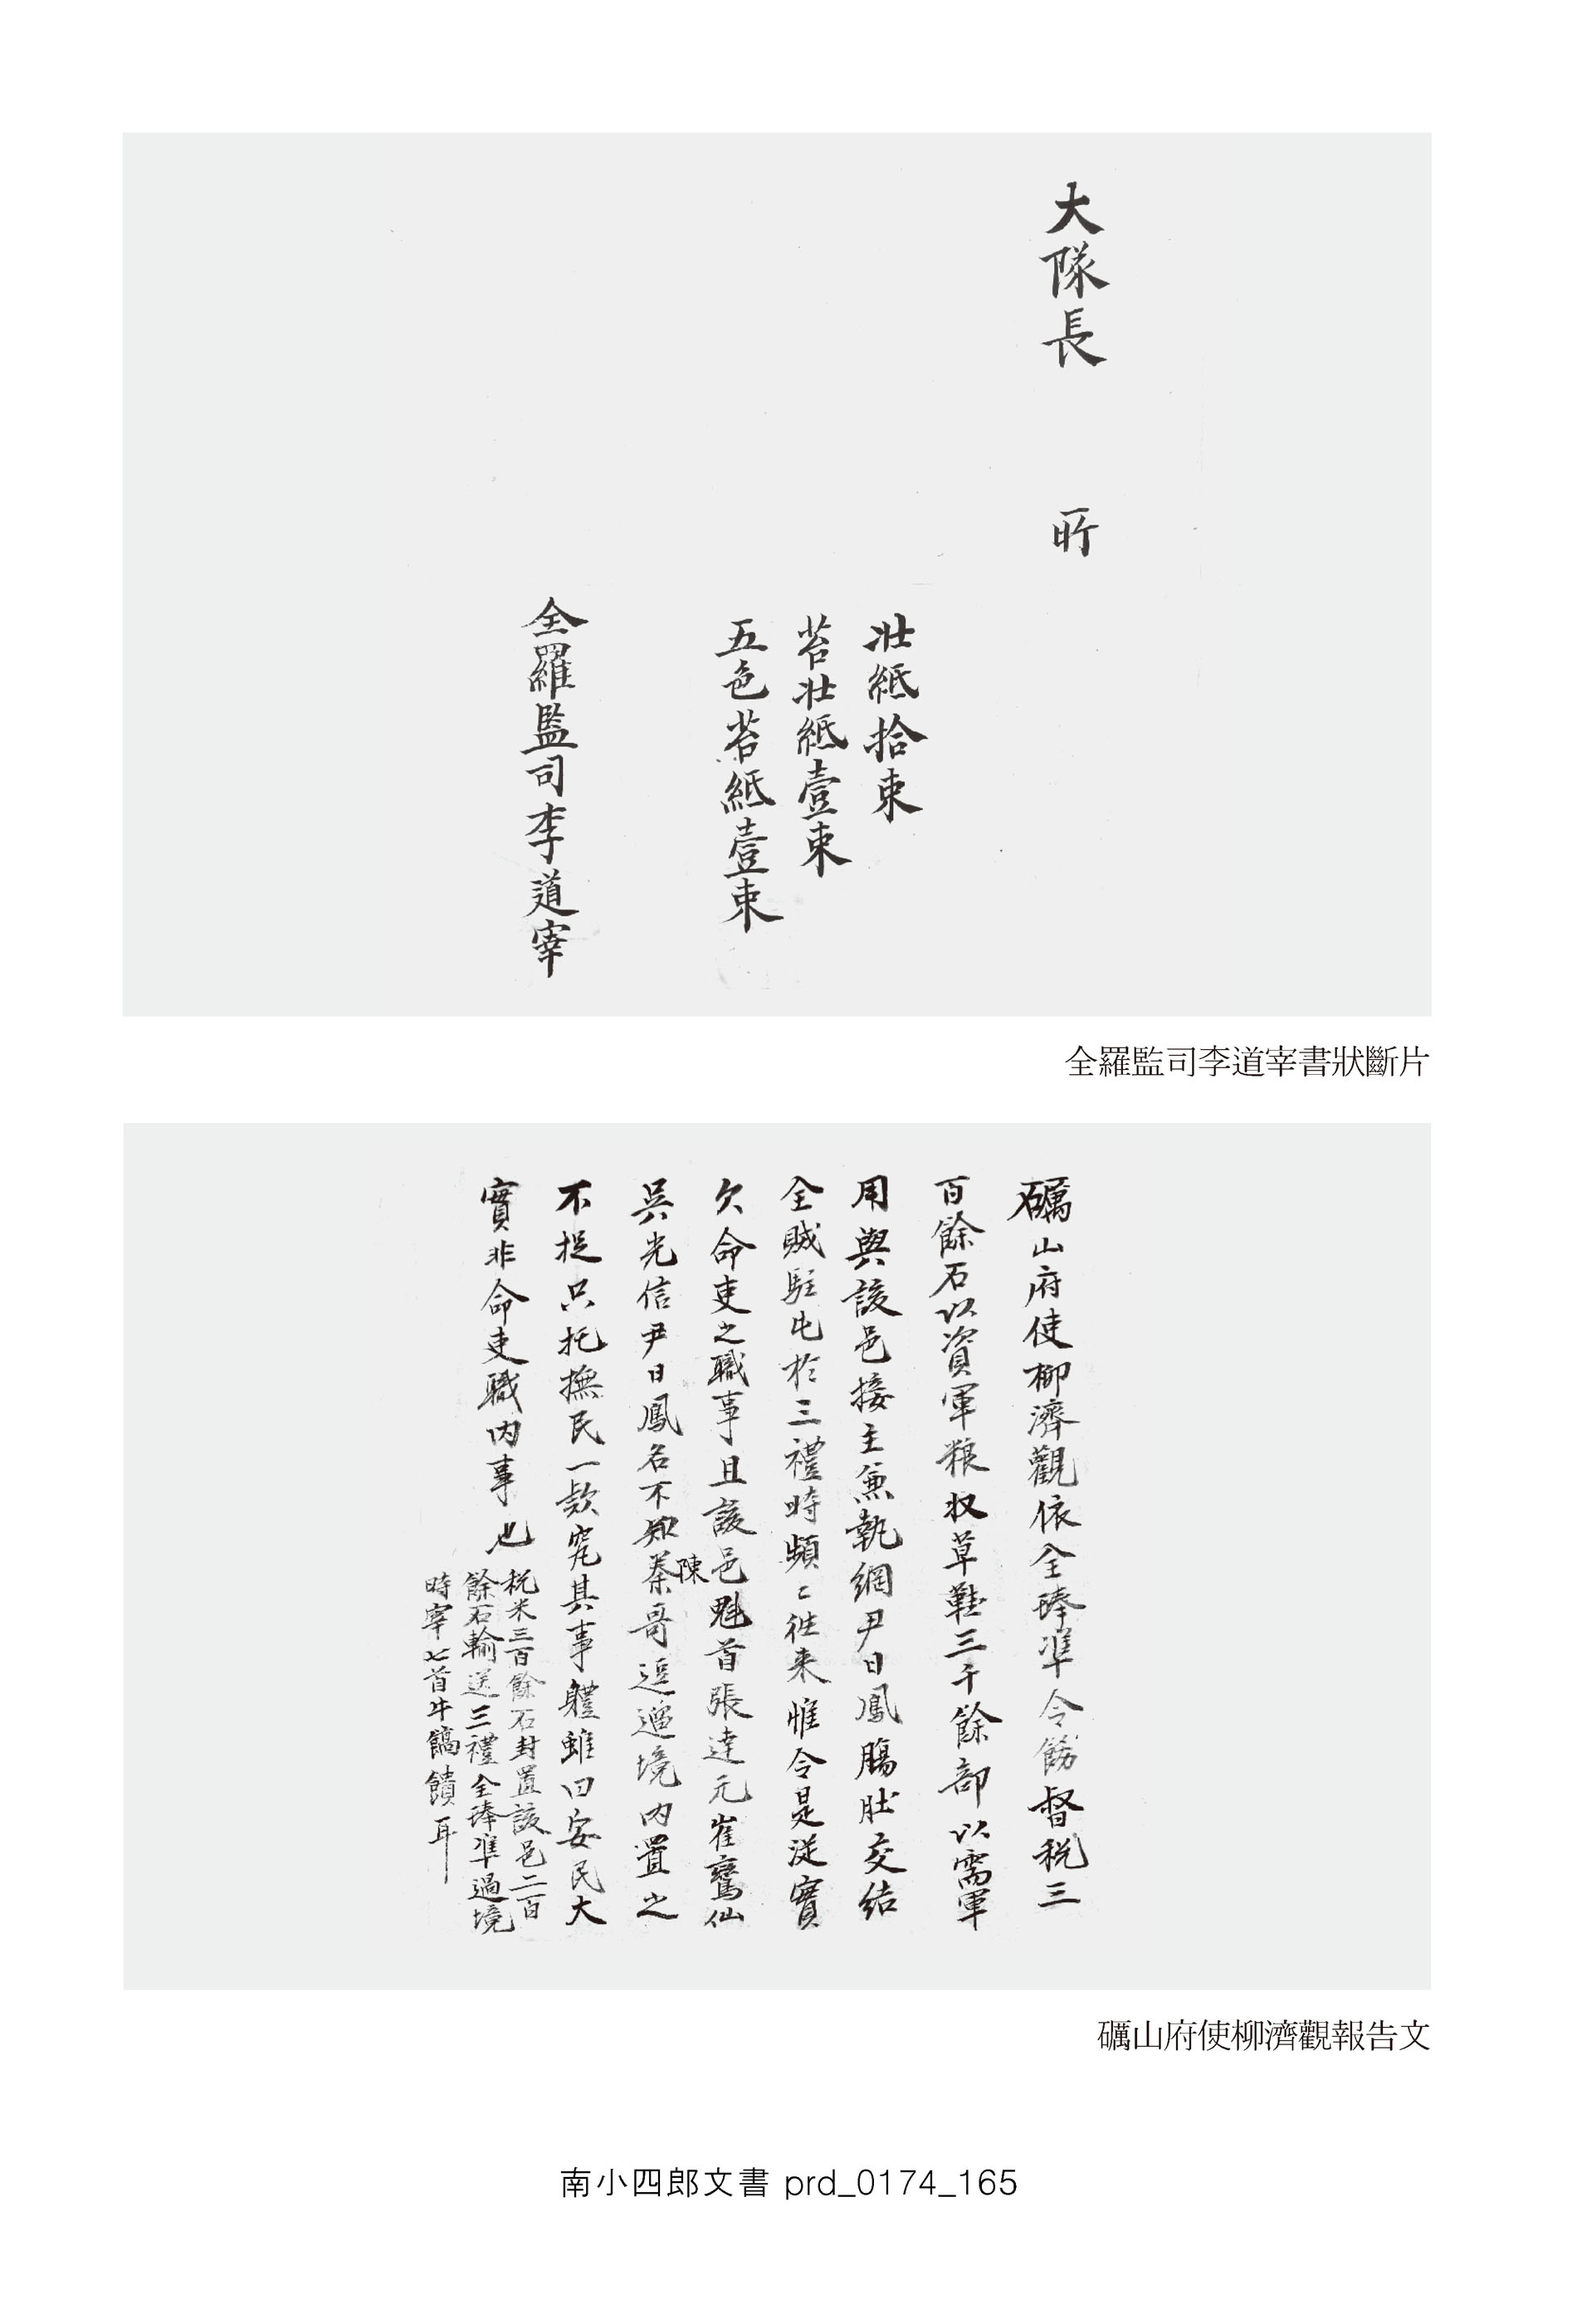 大隊長　所
壮紙拾束
苔壮紙壹束
五色苔紙壹束
全羅監司李道宰
全羅監司李道宰書狀斷片
礪山府使柳濟觀依全琫準令飭督稅三
百餘石以資軍粮收草鞋三千餘部以需軍
用與該邑接主兼執綱尹日鳳腸肚交結
全賊駐屯於三禮時頻〻徃來惟令是從實
欠命吏之職事且該邑魁首張達元崔鸞仙
吳光信尹日鳳名不知蔡陳哥逗遛境內置之
不捉只托撫民一款究其事軆雖曰安民大
實非命吏職內事也
稅米三百餘石封置該邑二百
餘石輸送三禮全琫準過境
時宰七首牛饋饋耳
礪山府使柳濟觀報告文
南小四郎文書 prd_0174_165